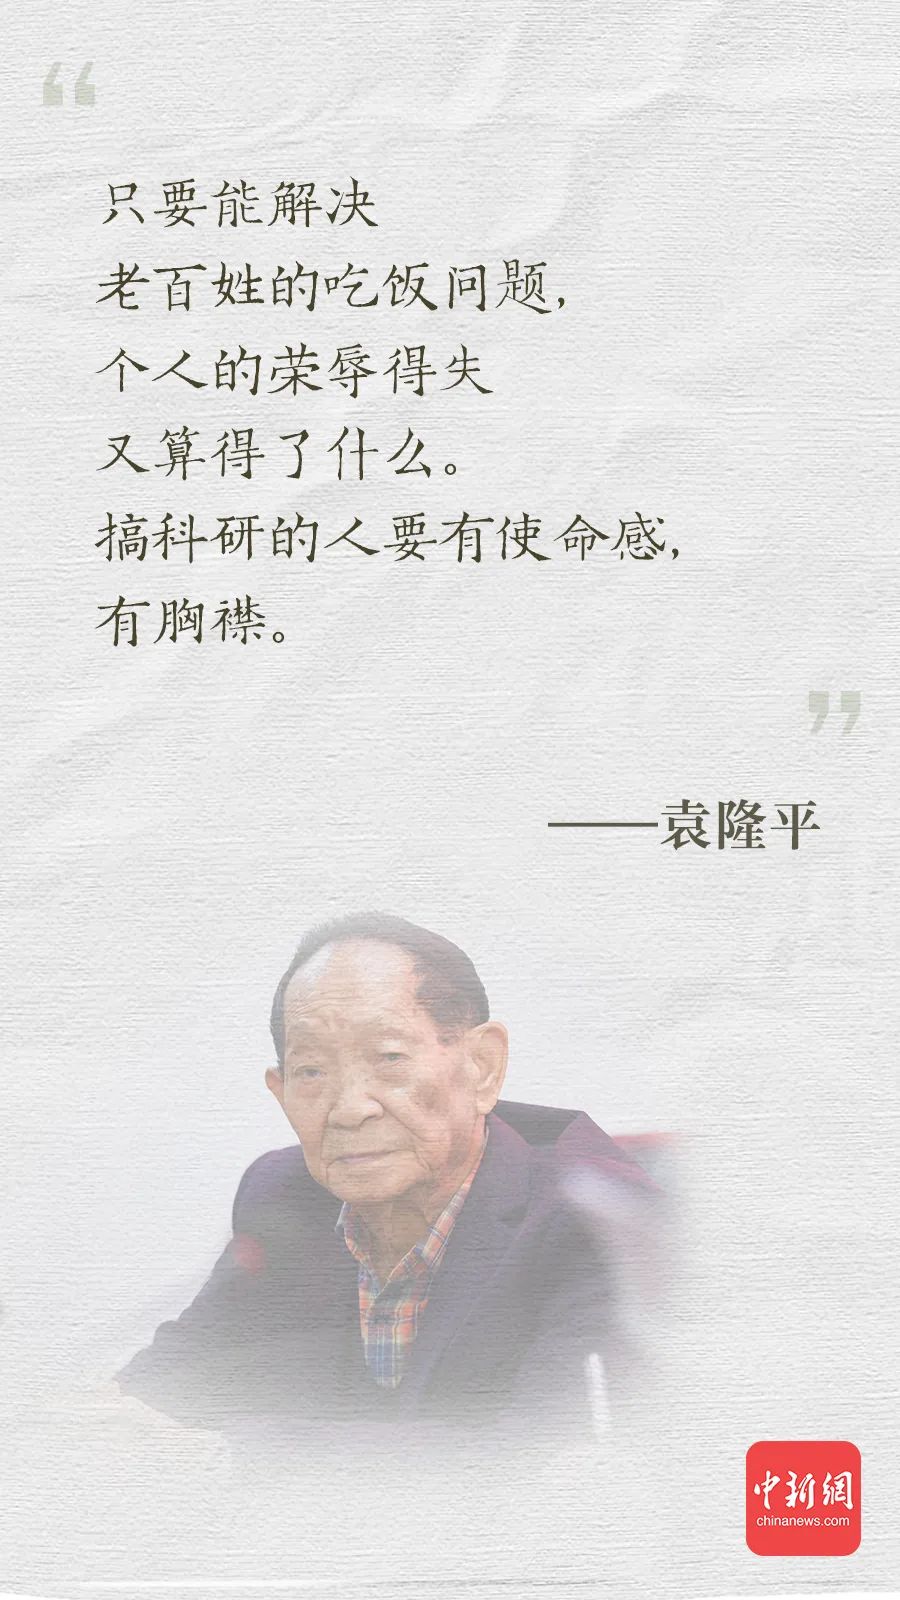 “
只要能解决
老百姓的吃饭问题，
个人的荣辱得失
又算得了什么。
搞科研的人要有使命感，
有胸襟。
”
——袁隆平
中新網
chinanews.com